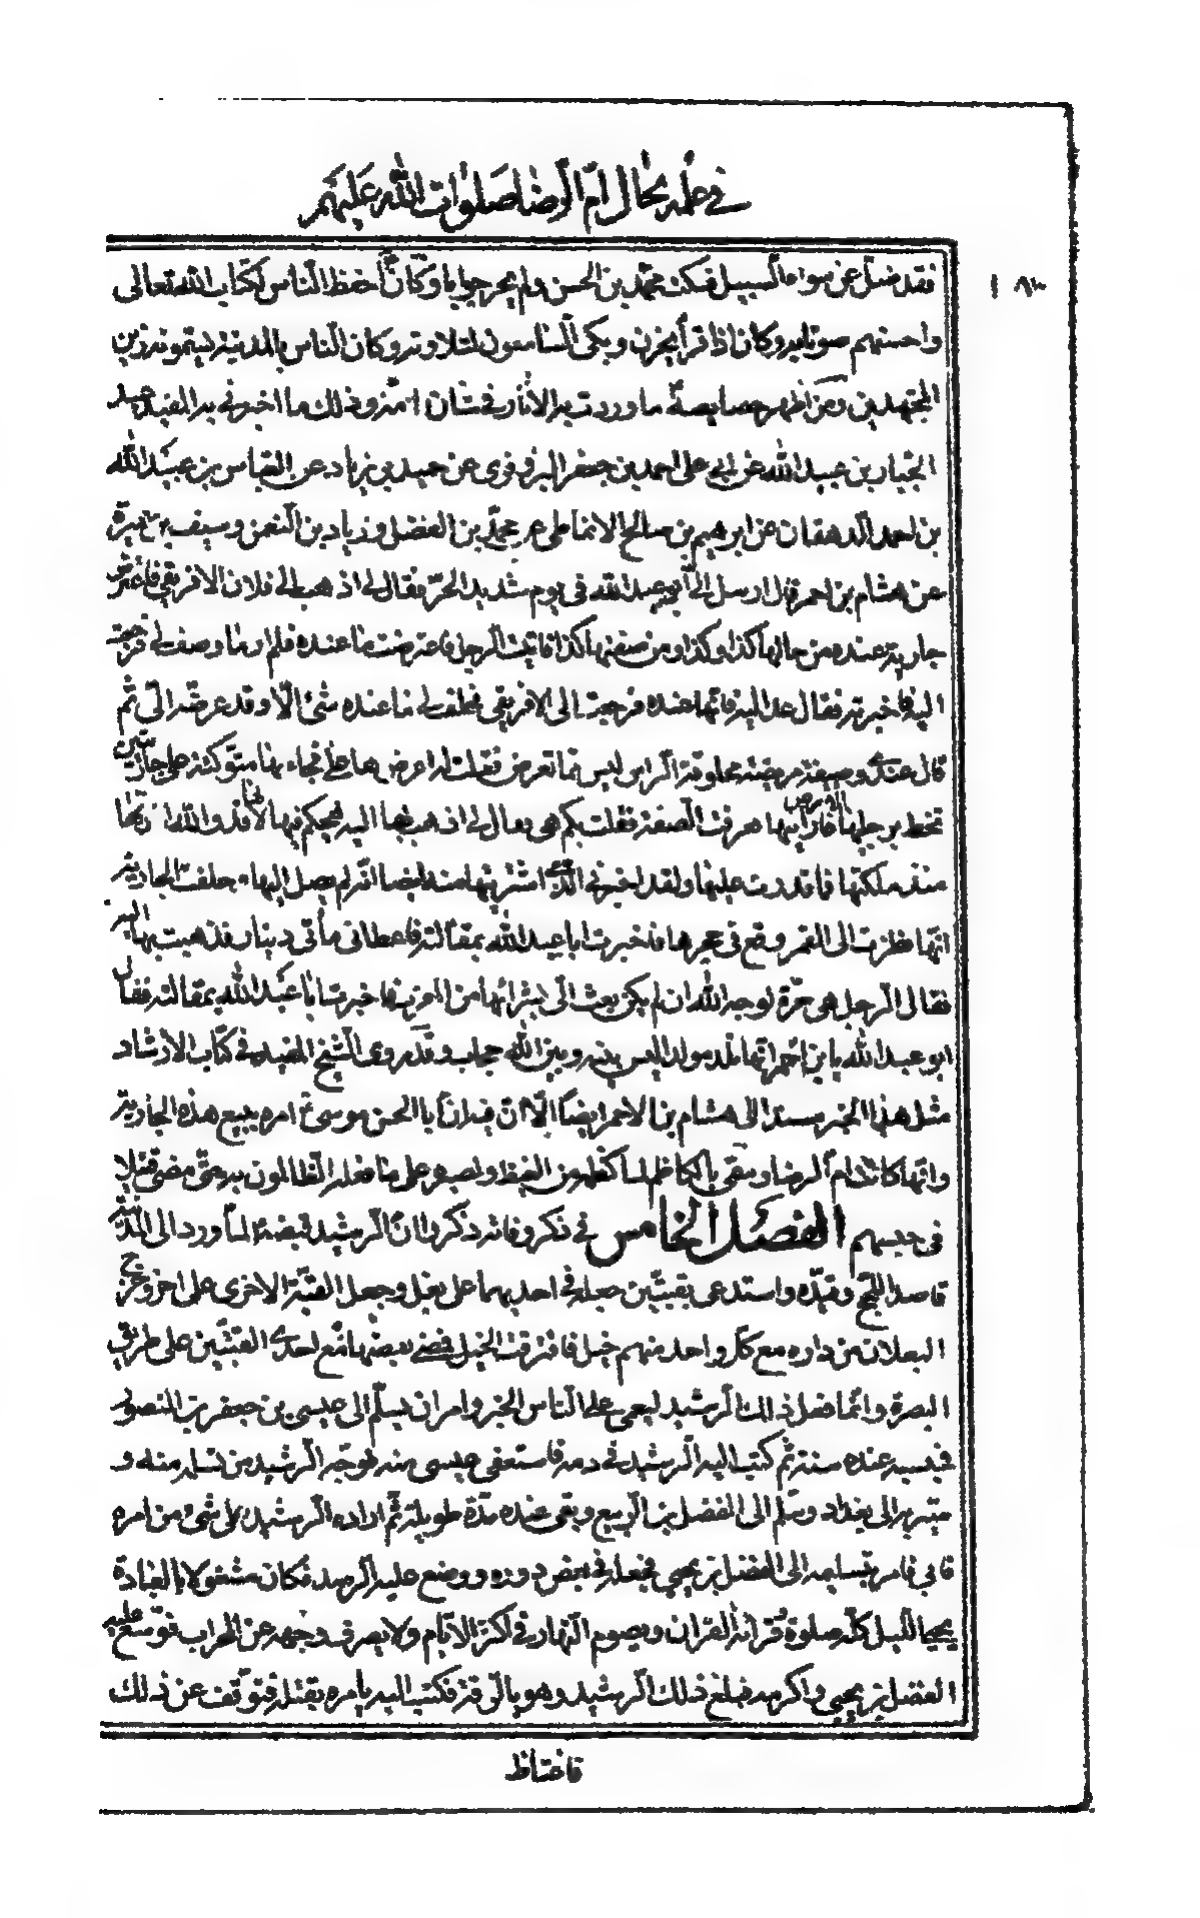 في علمه بحال ام الرضا صلوات الله عليهم
١٨٣
فقد ضل عن سواء السبيل فسكت محمد بن الحسن ولم يحر جوابا وكان احفظ الناس لكتاب الله تعالى
واحسنهم صوتا به وكان اذا قرأ يحزن وبكى السامعون لتلاوته وكان الناس بالمدينة يسمونه زين
المجتهدين ومن اظهر خصايصه ما وردت به الاثار في شان امه من ذلك ما اخبرني به المفيد عبد
الجبار بن عبد الله عن ابي علي احمد بن جعفر البزوفري عن حميد بن زياد عن العباس بن عبيد الله
بن احمد الدهقان عن ابرهيم بن صالح الانماطي عن محمد بن الفضل وزياد بن النعمن وسيف بن عميرة
عن هشام بن احمر قال ارسل الي ابو عبد الله في يوم شديد الحر فقال لي اذهب الى فلان الافريقي فاعترض
جارية عنده من حالها كذا وكذا ومن صفتها كذا فاتيت الرجل فاعترضت ما عنده فلم ار ما وصف لي فرجعت
اليه فاخبرته فقال عد اليه فانها عنده فرجعت الى الافريقي فحلف لي ما عنده شئ الا وقد عرضه الي ثم
قال عندي وصيفة مريضة محلوقة الراس ليس مما تعرض فقلت له اعرضها علي فجاء بها متوكئة على جاريتين
تخط برجليها الارض فارانيها فعرفت الصفة فقلت بكم هي فقال لي اذهب بها اليه فيحكم فيها لانها قد والله اردتها
منذ ملكتها فما قدرت عليها ولقد اخبرني الذي اشتريتها منه ايضا انه لم يصل اليها وحلفت الجارية
انها نظرت الى القمر وقع في حجرها فاخبرت ابا عبد الله بمقالته فاعطاني مأتي دينار فذهبت بها اليه
فقال الرجل هي حرة لوجه الله ان لم يكن بعث الي بشرائها من المغرب فاخبرت ابا عبد الله بمقالته فقال
ابو عبد الله يا بن احمر انها تلد مولدا ليس بينه وبين الله حجاب وقد روى الشيخ المفيد في كتاب الارشاد
مثل هذا الخبر مسندا الى هشام بن الاحمر ايضا الا ان فيه ان ابا الحسن موسى ع امره ببيع هذه الجارية
وانها كانت ام الرضا وسمي بالكاظم لما كظمه من الغيظ وصبر على ما فعله الظالمون به حتى مضى قتيلا
في حبسهم الفصل الخامس في ذكر وفاته ذكروا ان الرشيد قبضه لما ورد الى المدينة
قاصدا للحج وقيده واستدعى بقبتين جعله في احديهما على بغل وجعل القبة الاخرى على اخر وخرج
البغلان من داره مع كل واحد منهم خيل فافترقت الخيل فمضى بعضها مع احدى القبتين على طريق
البصرة وانما فعل ذلك الرشيد ليعمي على الناس الخبر وامر ان يسلم الى عيسى بن جعفر بن المنصور
فحبسه عنده سنة ثم كتب اليه الرشيد في دمه فاستعفى عيسى منه فوجه الرشيد من تسلمه منه و
صير به الى بغداد وسلم الى الفضل بن الربيع وبقي عنده مدة طويلة ثم اراده الرشيد على شئ من امره
فابى فامر بتسليمه الى الفضل بن يحيى فجعله في بعض دوره ووضع عليه الرصد فكان مشغولا بالعبادة
يحيى الليل كله صلوة وقرائة القران ويصوم النهار في اكثر الايام ولا يصرف وجهه عن المحراب فوسع عليه
الفضل بن يحيى واكرمه فبلغ ذلك الرشيد وهو بالرقة فكتب اليه يامره بقتله فتوقف عن ذلك
فاغتاظ